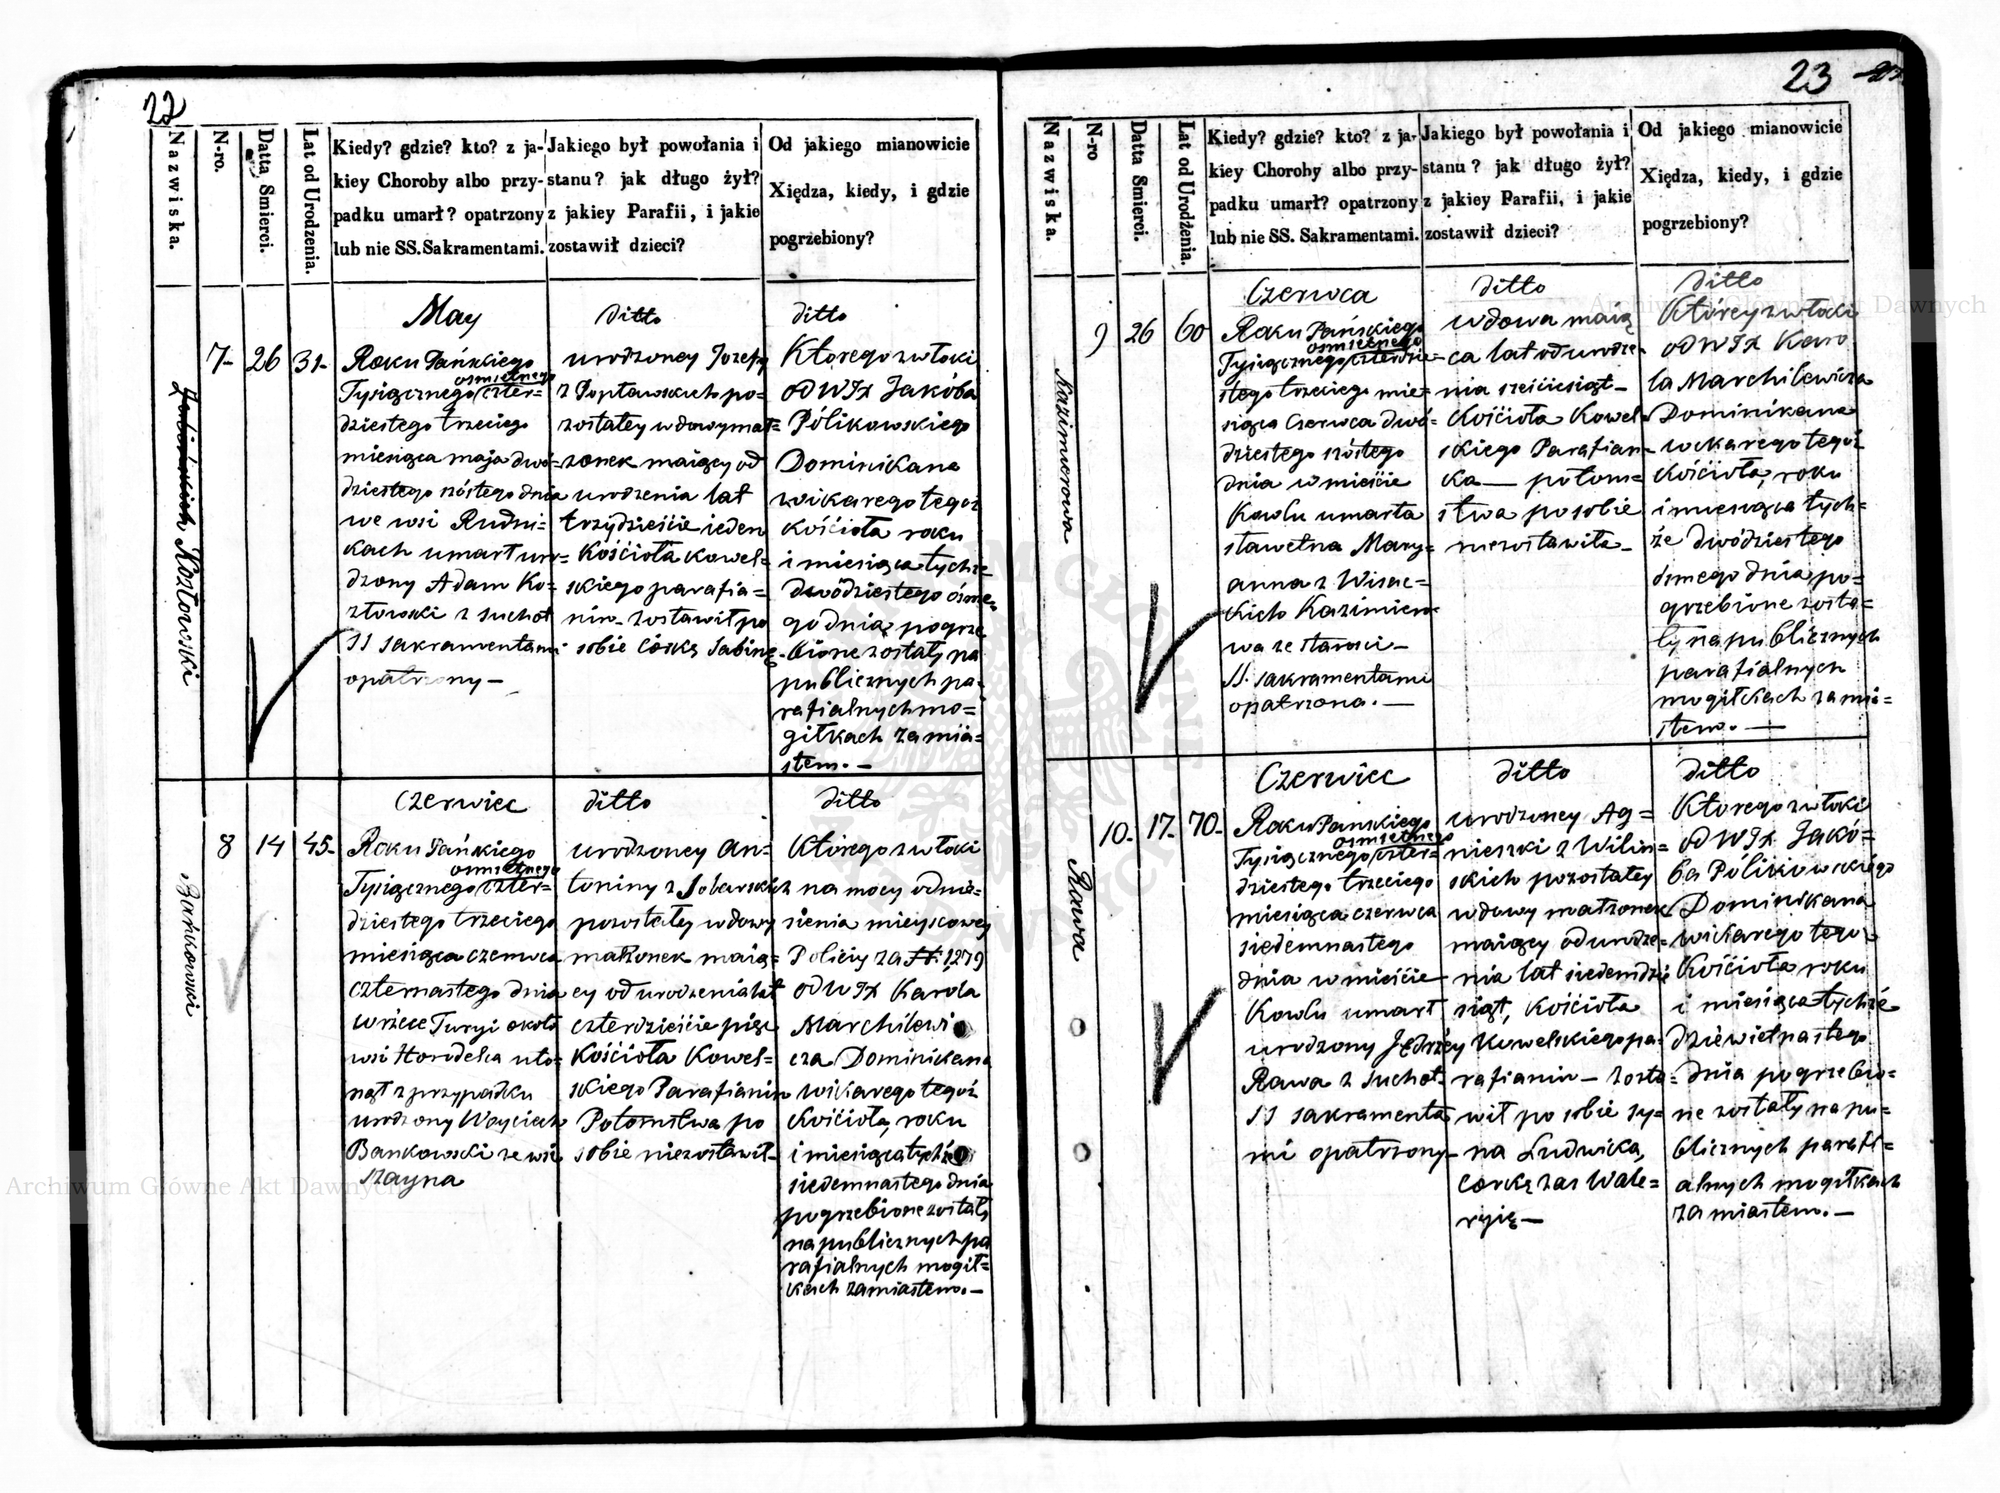 22
Nazwiska.
N-ro.
Datta Smierci.
Lat od Urodzenia.
Kiedy? gdzie? kto? z ja-
kiey Choroby albo przy-
padku umarł? opatrzony
lub nie SS. Sakramentami.
Jakiego był powołania i
stanu? jak długo żył?
z jakiey Parafii, i jakie
zostawił dzieci?
Od jakiego mianowicie
Xiędza, kiedy, i gdzie
pogrzebiony?
Kozłowski
7-
26
31-
May
Roku Pańskiego
Tysiącznego osmsetnego czter-
dziestego trzeciego
miesiąca maja dwó-
dziestego szóstego dnia
we wsi Rudni-
kach umarł uro-
dzony Adam Ko-
złowski z suchot
SS sakramentami
opatrzony —
ditto
urodzoney Jozefy
z Popławskich po-
zostałey wdowy mał=
żonek maiący od
urodzenia lat
trzydzieście ieden
Kościoła Kowel-
skiego parafia=
nin - zostawił po
sobie córkę Sabinę
ditto
Którego zwłoki
od WJX Jakóba
Pólikowskiego
Dominikana
wikarego tegoż
Kościoła roku
i miesiąca tychże
dwódziestego ósme-
go dnia pogrze
bione zostały na
publicznych pa-
rafialnych mo=
giłkach za mia=
stem. —
Bańkowski
8
14
45-
Czerwiec
Roku Pańskiego
Tysiącznego osmsetnego czter-
dziestego trzeciego
miesiąca czerwca
czternastego dnia
w rzece Turyi około
wsi Horodelca uto-
nął z przypadku
urodzony Woyciech
Bankowski ze wsi
Szayna
ditto
urodzoney An-
toniny z Soberskich
pozostałey wdowy
małżonek maią-
cy od urodzenia lat
czterdzieście pięć
Kościoła Kowel=
skiego Parafianin
Potomstwa po
sobie niezostawił-
ditto
Którego zwłoki
na mocy odnie-
sienia mieyscowey
Policiy za N. 1279
od WJX Karola
Marchilewi
cza Dominikana
wikarego tegoż
Kościoła, roku
i miesiąca tychże
siedemnastego dnia
pogrzebione zostały
na publicznych pa
rafialnych mogił=
kach za miastem. —
23
Nazwiska.
N-ro
Datta Smierci.
Lat od Urodzenia.
Kiedy? gdzie? kto? z ja-
kiey Choroby albo przy-
padku umarł? opatrzony
lub nie SS. Sakramentami.
Jakiego był powołania i
stanu? jak długo żył?
z jakiey Parafii, i jakie
zostawił dzieci?
Od jakiego mianowicie
Xiędza, kiedy, i gdzie
pogrzebiony?
Kazimerowa
9
26
60
Czerwca
Roku Pańskiego
Tysiącznego osmsetnego czterdzie-
stego trzeciego mie-
siąca Czerwca dwó-
dziestego szóstego
dnia w mieście
Kowlu umarła
sławetna Mary=
anna z Wisec=
kich Kazimiero-
wa ze starości —
SS. sakramentami
opatrzona. —
ditto
wdowa maią
ca lat od urodze-
nia sześćiesiąt —
Kościoła Kowel-
skiego Parafian-
ka — potom=
stwa po sobie
niezostawiła —
ditto
Którey zwłoki
od WJX Karo
la Marchilewicza
Dominikana
wikarego tegoż
Kościoła, roku
i miesiąca tych=
że dwódziestego
ósmego dnia po=
grzebione zosta=
ły na publicznych
parafialnych
mogiłkach za mia=
stem. —
Rawa
10-
17-
70-
Czerwiec
Roku Pańskiego
Tysiącznego osmsetnego czter-
dziestego trzeciego
miesiąca czerwca
siedemnastego
dnia w mieście
Kowlu umarł
urodzony Jędrzéy
Rawa z suchot
SS sakramenta
mi opatrzony —
ditto
urodzoney Ag=
nieszki z Wilin=
skich pozostałey
wdowy małżonek
maiący od urodze-
nia lat siedemdzie
siąt, Kościoła
Kowelskiego pa-
rafianin — zosta=
wił po sobie sy=
na Ludwika,
corkę zas Wale=
ryię —
ditto
Którego zwłoki
od WJX Jakó=
ba Pólikowskiégo
Dominikana
wikarego tego-
Kościoła roku
i miesiąca tychże
dziewiętnastego
dnia pogrzebio=
ne zostały na pu=
blicznych parafi=
alnych mogiłkach
za miastem. —
Archiwum Główne Akt Dawnych
Archiwum Główne Akt Dawnych